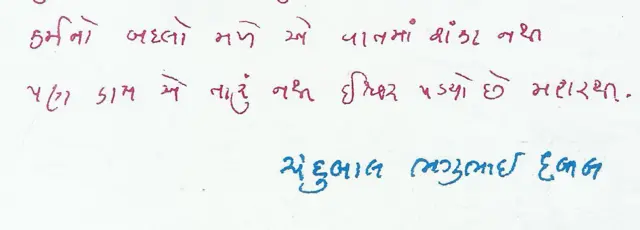 કર્મનો બદલો મળે એ વાતમાં શંકા નથી
પણ કામ એ તારું નથી ઈશ્વર પડ્યો છે
ચંદુલાલ ભગુભાઈ દલાલ